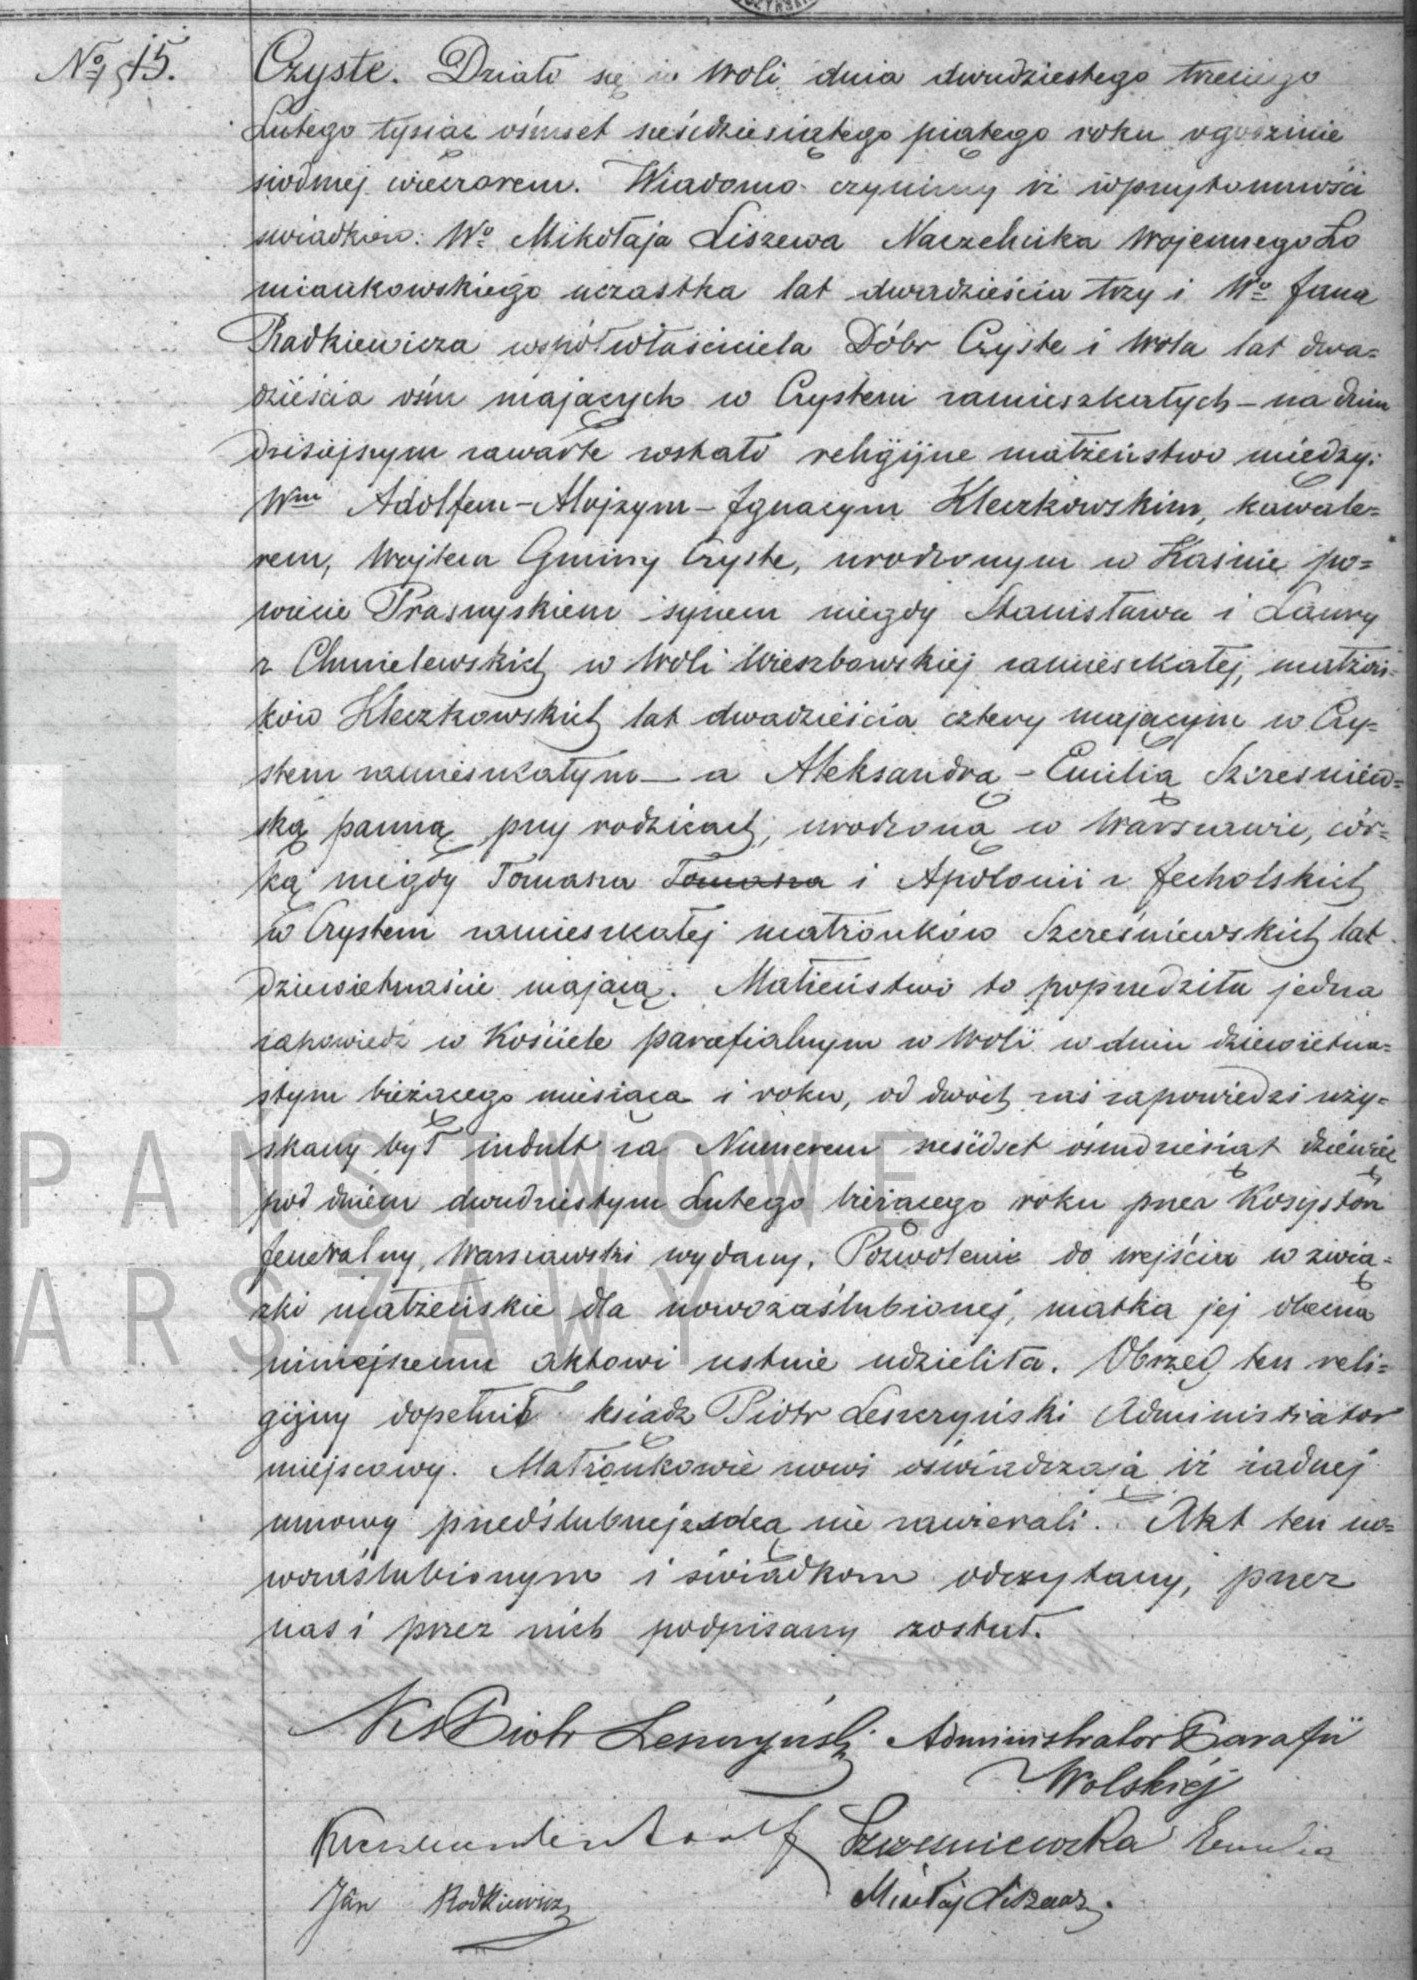 No 15.
Czyste. Działo się w Woli dnia dwudziestego trzeciego
Lutego tysiąc ośmset sześćdziesiątego piątego roku o godzinie
siódmej wieczorem. Wiadomo czynimy iż w przytomności
świadków: Wo Mikołaja Liszewa Naczelnika Wojennego Ło
miankowskiego uczastka lat dwadzieścia trzy i Wo Jana
Radkiewicza współwłaściciela Dóbr Czyste i Wola lat dwa=
dzieścia ośm mających w Czystem zamieszkałych – na dniu
dzisiejszym zawarte zostało religijne małżeństwo między:
Wm Adolfem – Alojzym – Ignacym Kleczkowskim, kawale=
rem, Wojtem Gminy Czyste, urodzonym w Kaśnie po=
wiecie Prasnyskiem synem niegdy Stanisława i Laury
z Chmielewskich w Woli Wieszbowskiej zamieszkałej, małżon=
ków Kleczkowskich lat dwadzieścia cztery mającym w Czy=
stem zamieszkałym – a Aleksandrą – Emilią Szcześniew=
ską panną przy rodzicach, urodzoną w Warszawie, cór=
ką niegdy Tomasza Tomasza i Apolonii z Jecholskich
w Czystem zamieszkałej małżonków Szcześniewskich lat
dziewietnaście mającą. Małżeństwo to poprzedziła jedna
zapowiedź w Kościele parafialnym w Woli w dniu dziewiętna=
stym bieżącego miesiąca i roku, od dwóch zaś zapowiedzi uzy=
skany był indult za Numerem sześćset ośmdziesiąt dziewięć
pod dniem dwudziestym Lutego bieżącego roku przez Kosystorz
Jeneralny Warszawski wydany. Pozwolenie do wejścia w zwią=
zki małżeńskie dla nowozaślubionej, matka jej obecna
niniejszemu aktowi ustnie udzieliła. Obrzęd ten reli=
gijny dopełnił ksiądz Piotr Leszczyński Administrator
miejscowy. Małżonkowie nowi oświadczają iż żadnej
umowy przedślubnej ze sobą nie zawierali. Akt ten no=
wozaślubionym i świadkom odczytany, przez
nas i przez nich podpisany został.
Ks Piotr Leszczyński Administrator Parafii
Wolskiéj
Adolf Szczesniewska Emilia
Jan Radkiewicz Mikołaj
PAŃSTWOWE
ARSZAWY